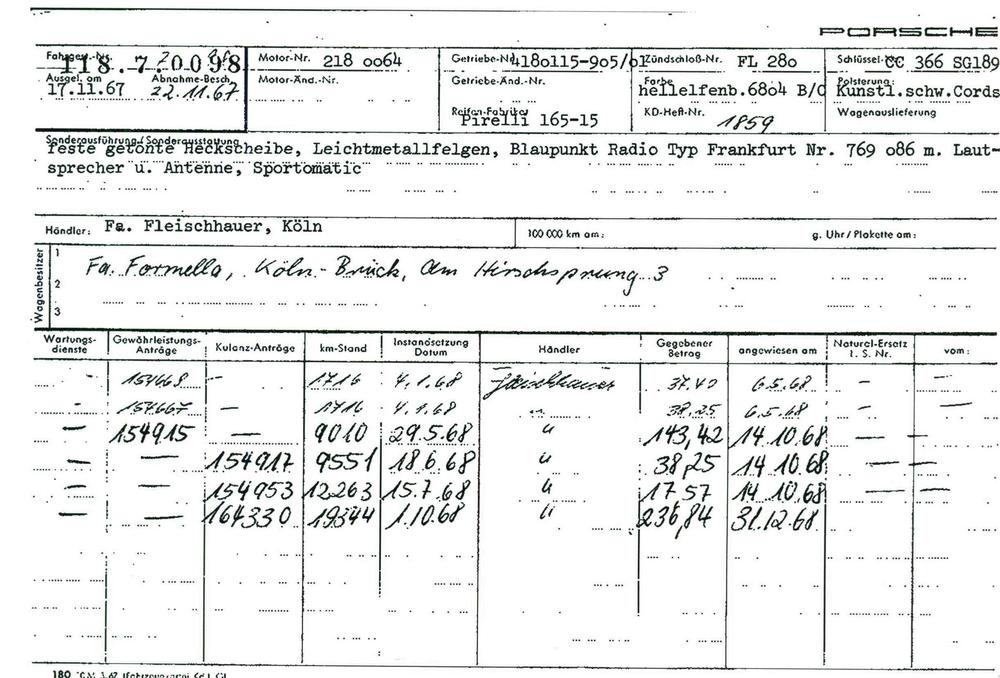 PORSCHE
Fahrgest.-Nr. 118.7.0098 Motor-Nr. 218 oo64 Getriebe-Nr. 4180115-905/01 Zündschloß-Nr. FL 28o Schlüssel- CC 366 SG189
Ausgel. am Abnahme-Besch. Motor-Änd.-Nr. Getriebe-Änd.-Nr. Farbe Polsterung:
17.11.67 22.11.67 hellelfenb.68o4 B/C Kunstl.schw.Cords
Reifen-Fabrikat KD-Heft-Nr. 1859 Wagenauslieferung
Pirelli 165-15
Sonderausführung/Sonderausstattung
feste getönte Heckscheibe, Leichtmetallfelgen, Blaupunkt Radio Typ Frankfurt Nr. 769 o86 m. Laut-
sprecher u. Antenne, Sportomatic
Händler: Fa. Fleischhauer, Köln 100 000 km am: g. Uhr/Plakette am:
Wagenbesitzer
1 Fa. Formella, Köln-Brück, Am Hirschsprung 3
2
3
Wartungs-dienste Gewährleistungs-Anträge Kulanz-Anträge km-Stand Instandsetzung Datum Händler Gegebener Betrag angewiesen am Naturel-Ersatz l. S. Nr. vom:
154668 — 1716 4.1.68 Fleischhauer 37.40 6.5.68 — —
- 154667 — 1716 4.1.68 " 38,25 6.5.68 — —
— 154915 — 9010 29.5.68 " 143,42 14.10.68 — —
— — 154917 9551 18.6.68 " 38,25 14.10.68 — —
— — 154953 12263 15.7.68 " 17.57 14.10.68 — —
— — 164330 19344 1.10.68 " 236,84 31.12.68
180